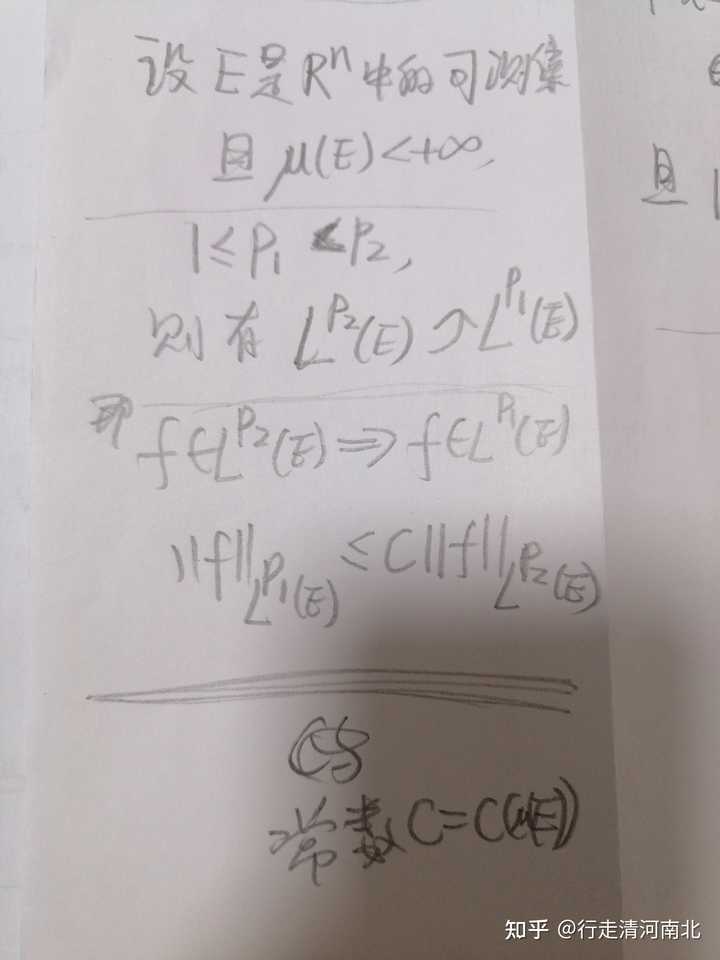 设E是Rⁿ中的可测集
且 μ(E)<+∞,
1≤P₁<P₂,
则有 L^{P₂}(E)↪L^{P₁}(E)
即 f∈L^{P₂}(E)⇒f∈L^{P₁}(E)
||f||_{L^{P₁}(E)} ≤C||f||_{L^{P₂}(E)}
常数C=C(μ(E))
且
知乎 @行走清河南北